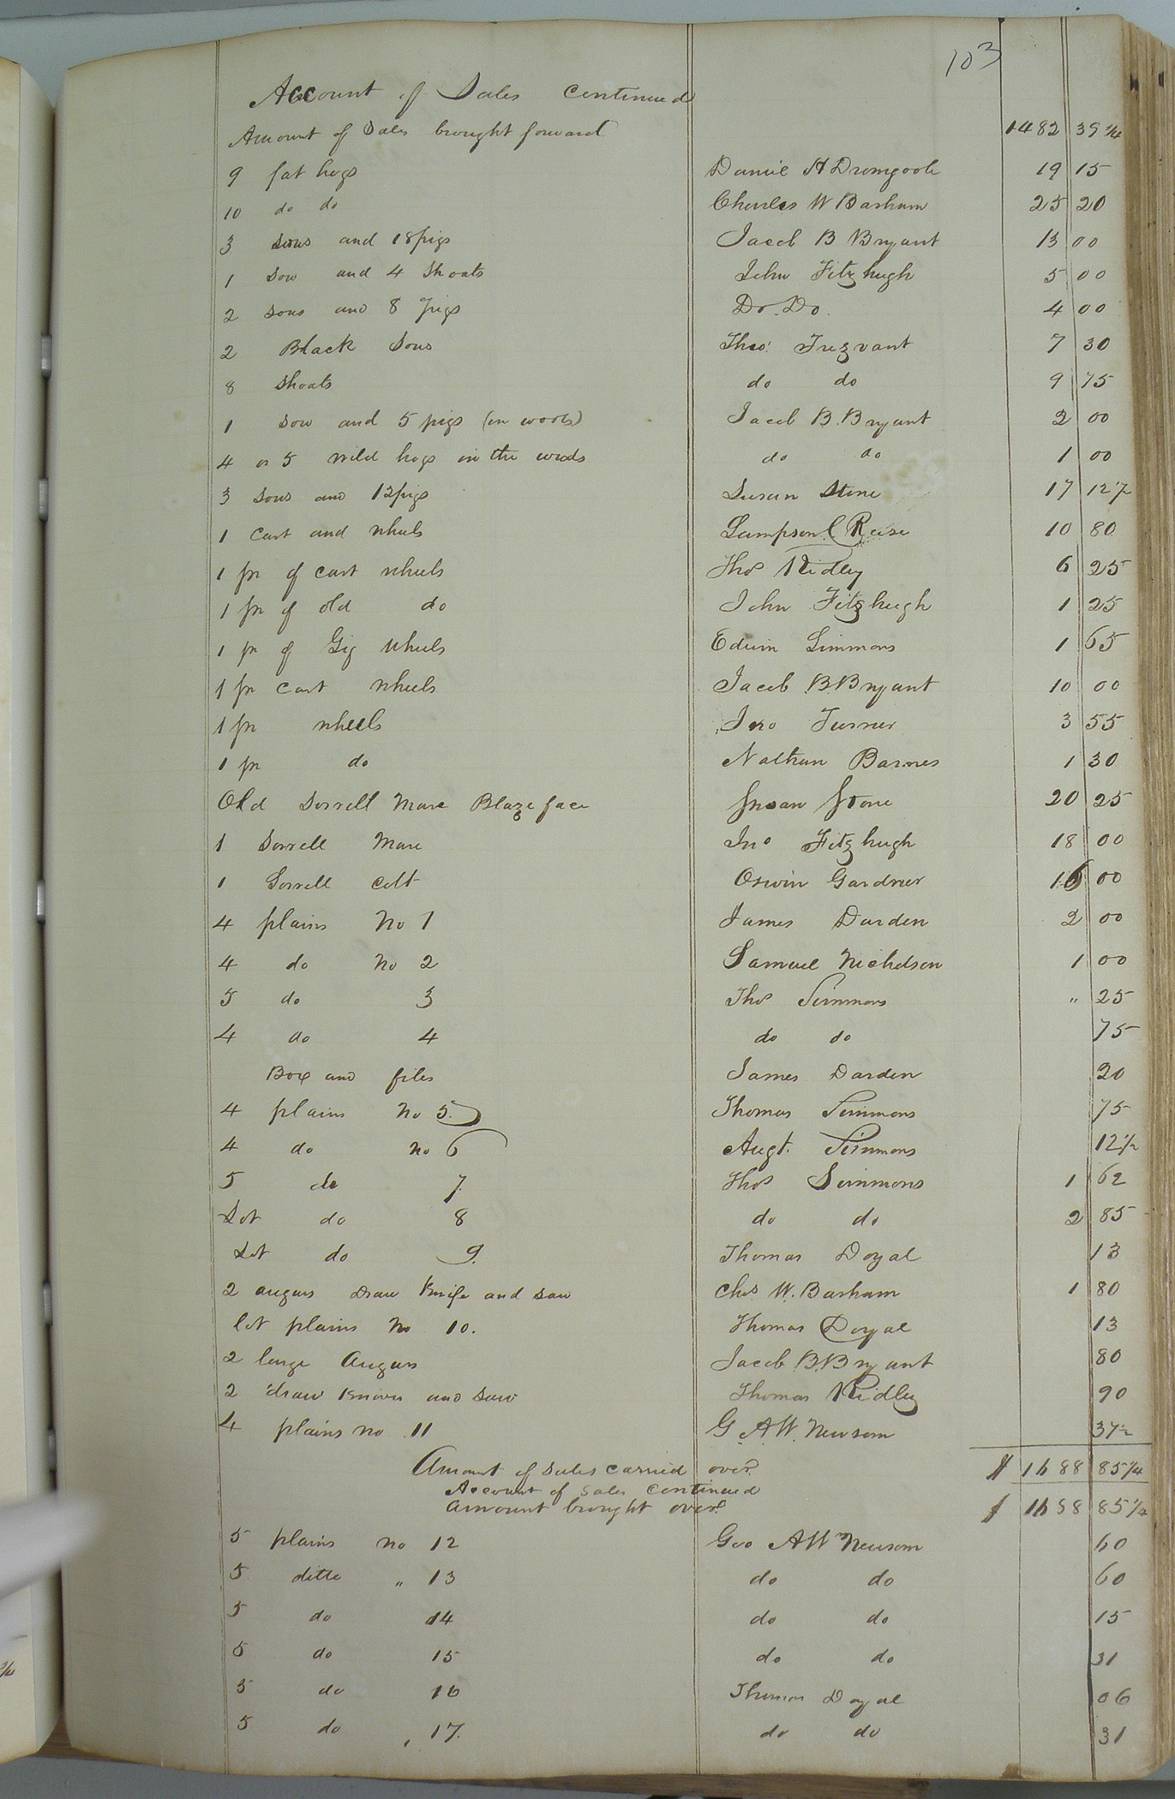 103
Account of Sales continued
Amount of Sales brought forward 1482 39 1/4
9 fat hogs Daniel H Dromgoole 19 15
10 do do Charles W Barham 25 20
3 Sows and 18 pigs Jacob B Bryant 13 00
1 Sow and 4 Shoats John Fitzhugh 5 00
2 Sows and 8 Pigs Do. Do. 4 00
2 Black Sows Theo: Trezvant 7 30
8 Shoats do do 9 75
1 Sow and 5 pigs (in woods) Jacob B. Bryant 2 00
4 or 5 wild hogs in the woods do do 1 00
3 Sows and 12 pigs Susan Stone 17 12 1/2
1 Cart and wheels Sampson C Reese 10 80
1 pr of cart wheels Thos Ridley 6 25
1 pr of old do John Fitzhugh 1 25
1 pr of Gig wheels Edwin Simmons 1 65
1 pr cart wheels Jacob B. Bryant 10 00
1 pr wheels Jno Turner 3 55
1 pr do Nathan Barnes 1 30
Old Sorrell Mare Blaze face Susan Stone 20 25
1 Sorrell Mare Jno Fitzhugh 18 00
1 Sorrell colt Orwin Gardner 16 00
4 plains No 1 James Darden 2 00
4 do No 2 Samuel Nicholson 1 00
5 do 3 Thos Simmons " 25
4 do 4 do do 75
Box and files James Darden 20
4 plains No 5. Thomas Simmons 75
4 do No 6 Augt. Simmons 12 1/2
5 do 7. Thos Simmons 1 62
Lot do 8 do do 2 85
Lot do 9. Thomas Doyal 13
2 augurs Draw Knife and Saw Chs W. Barham 1 80
lot plains No 10. Thomas Doyal 13
2 large Augurs Jacob B. Bryant 80
2 draw knives and Saw Thomas Ridley 90
4 plains no 11 G. A. W. Newsom 37 1/2
Amount of Sales carried over. $ 1688 85 1/4
Account of Sales continued
Amount brought over. $ 1688 85 1/4
5 plains no 12 Geo A W Newsom 60
5 ditto " 13 do do 60
5 do 14 do do 15
5 do 15 do do 31
5 do 16 Thomas Doyal 06
5 do , 17. do do 31